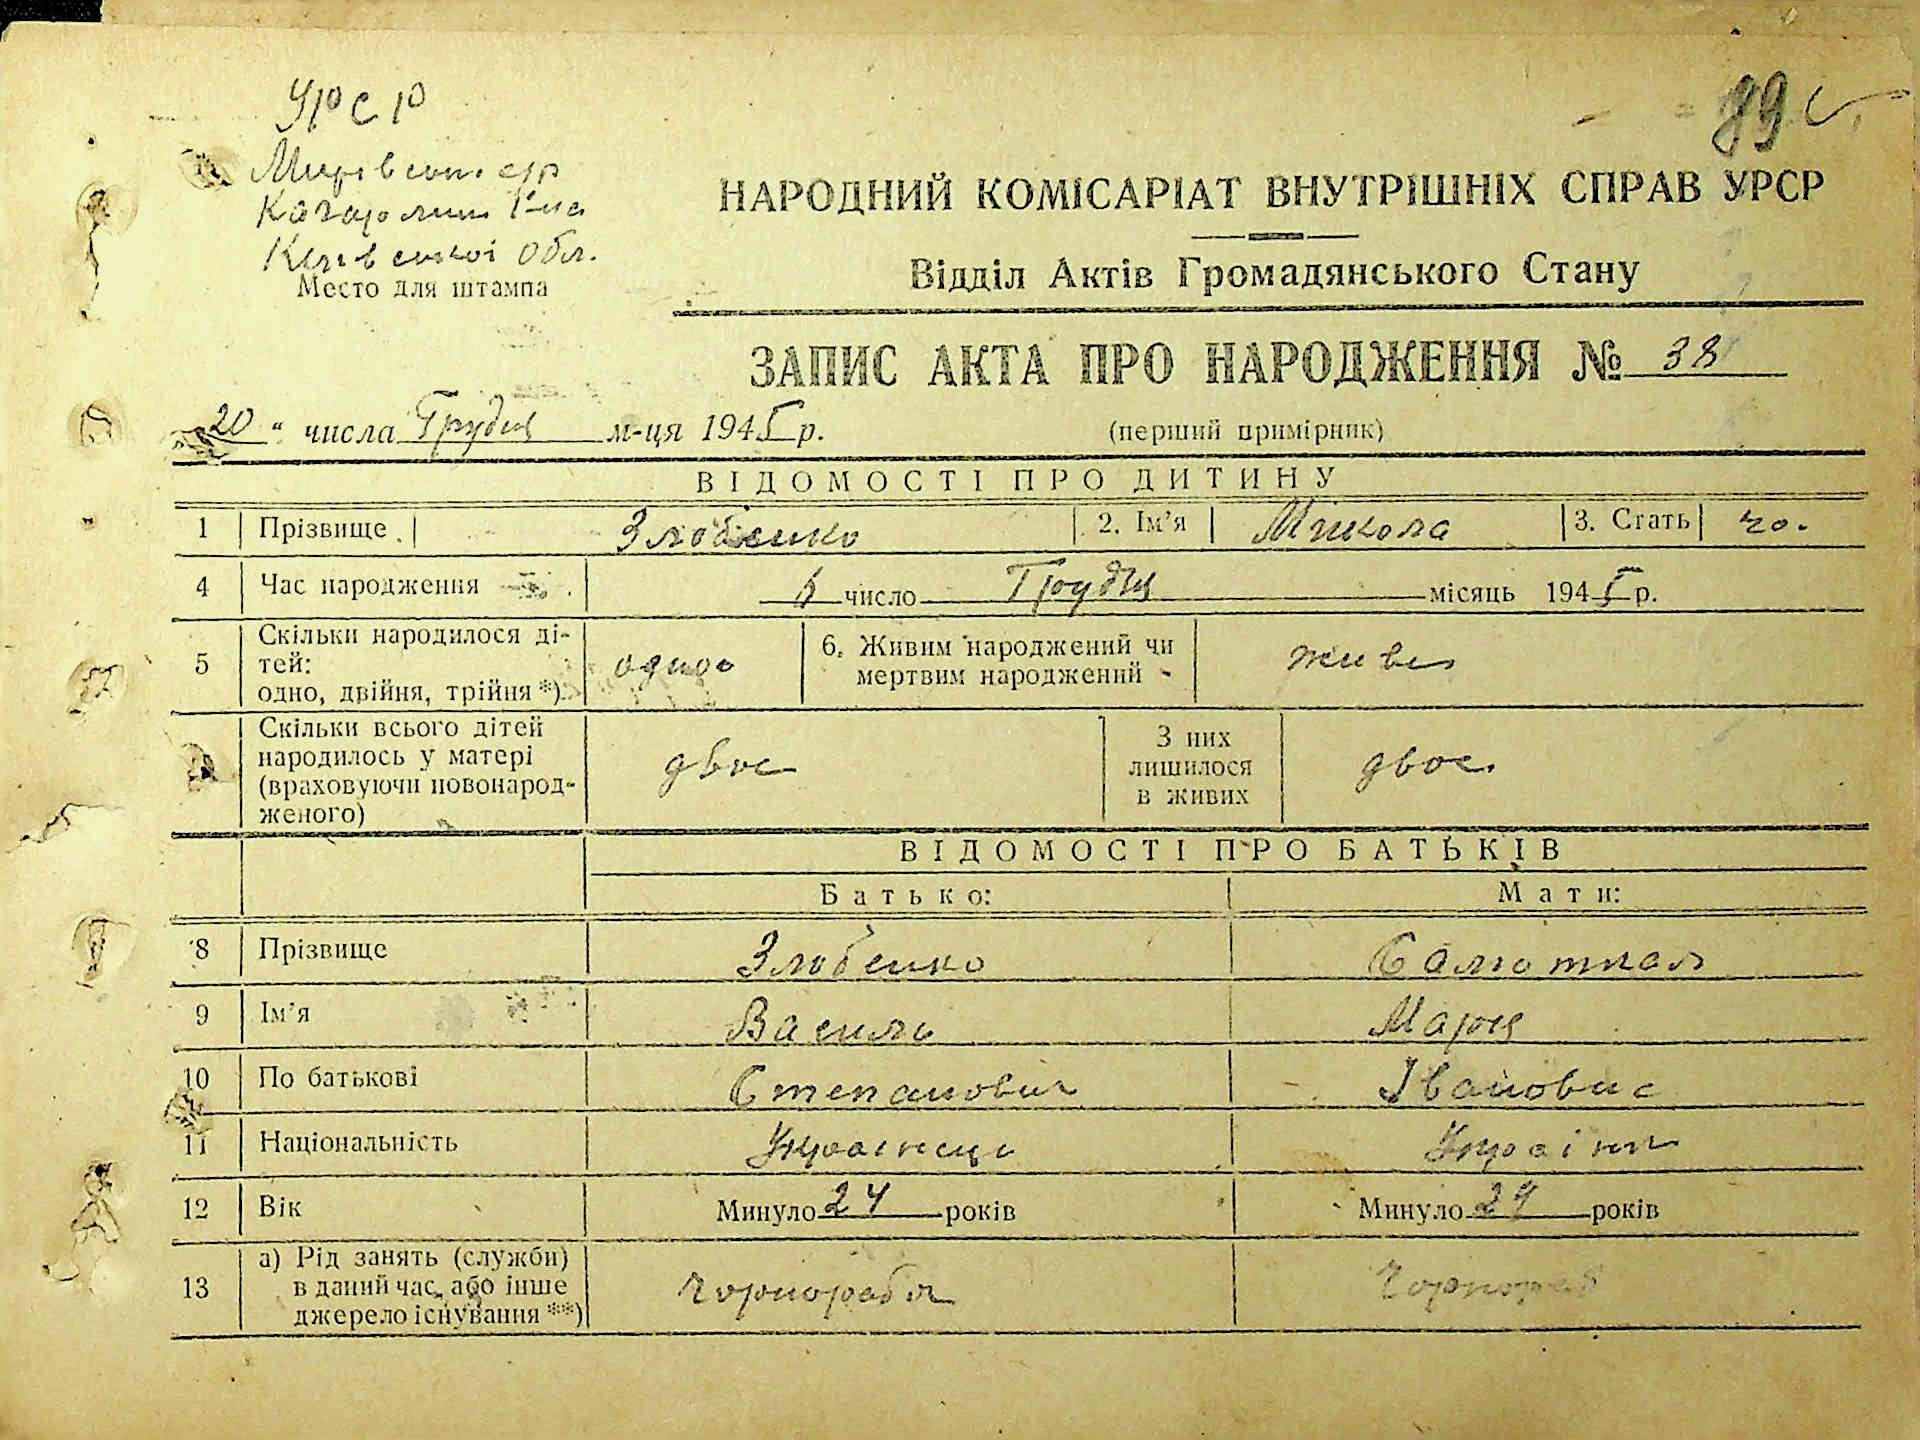 УРСР
89
Мирівськ. с/р
Кагарлицьк. р-на
Київської обл.
Место для штампа
НАРОДНИЙ КОМІСАРІАТ ВНУТРІШНІХ СПРАВ УРСР
Відділ Актів Громадянського Стану
ЗАПИС АКТА ПРО НАРОДЖЕННЯ № 38
20 " числа Грудня м-ця 1945 р. (перший примірник)
ВІДОМОСТІ ПРО ДИТИНУ
1 Прізвище Злобенко 2. Ім'я Микола 3. Стать чо.
4 Час народження число Грудня місяць 1945 р.
5 Скільки народилося ді-
тей:
одно, двійня, трійня *) одно 6. Живим народжений чи
мертвим народжений живе
Скільки всього дітей
народилось у матері
(враховуючи новонарод-
женого) двоє З них
лишилося
в живих двоє.
ВІДОМОСТІ ПРО БАТЬКІВ
Батько: Мати:
8 Прізвище Злобенко
9 Ім'я Василь Марія
10 По батькові Степанович Івановна
11 Національність Українець Українк
12 Вік Минуло 24 років Минуло 24 років
13 а) Рід занять (служби)
в даний час, або інше
джерело існування **) Чорнороб Чорнороб